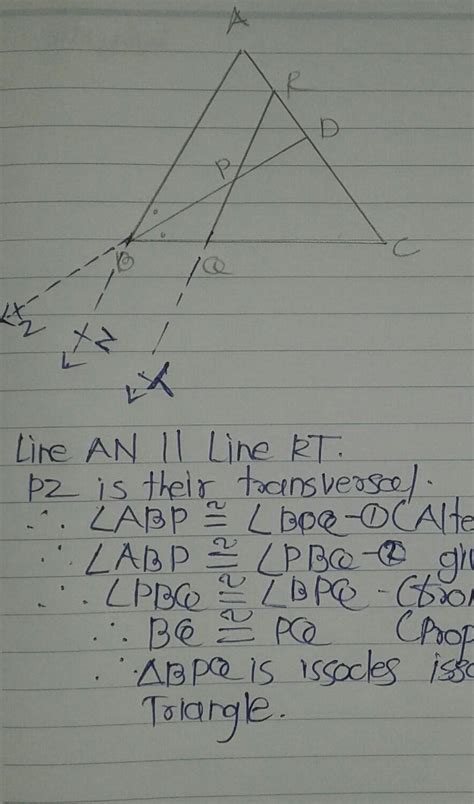 A
R
D
P
B
Q
C
Z
N
Line AN || Line RT.
PZ is their transversal.
∴ ∠ABP ≅ ∠BPQ - ① (Alte
∴ ∠ABP ≅ ∠PBQ - ② gi
∴ ∠PBQ ≅ ∠BPQ - (from
∴ BQ ≅ PQ (Prop
∴ △BPQ is issocles iss
Triangle.